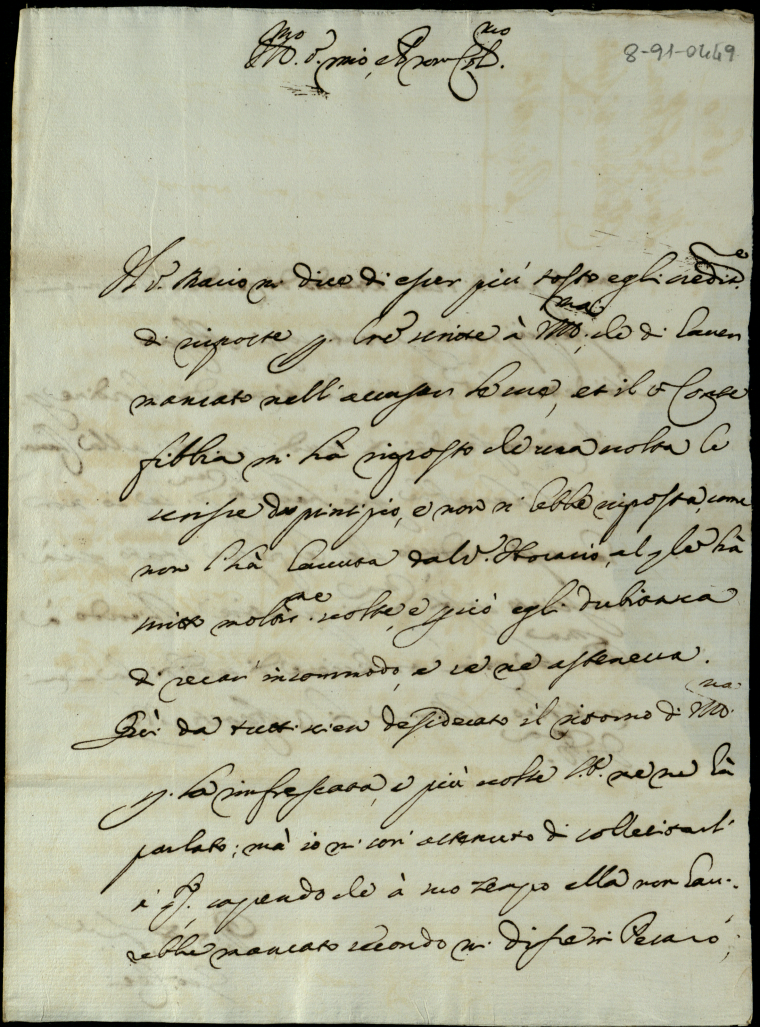 8-91-0449
Ill.mo S.r mio, e P.ron Col.mo
Il S.r Macio mi dice di esser più tosto egli credit.e
di risposte p. lre scritte à V.S. Ill.ma, che di haver
mancato nell'accusar le sue, et il S.r Conte
fibbia mi hà risposto che una volta le
scrisse da principio, e non ni hebbe risposta, come
non l'hà havuta dal S.r Horacio, al q.le hà
scritto molte volte, e perciò egli dubitava
di recar' incommodo, e se ne asteneva.
Quì da tutti vien desiderato il ritorno di V.S. Ill.ma
p. la rinfrescata, e più volte S.A. me ne hà
parlato; mà io mi son' astenuto di sollecitarl'
i S.ri, sapendo che à suo tempo ella non hau-
rebbe mancato secondo mi disse in Pesaro;